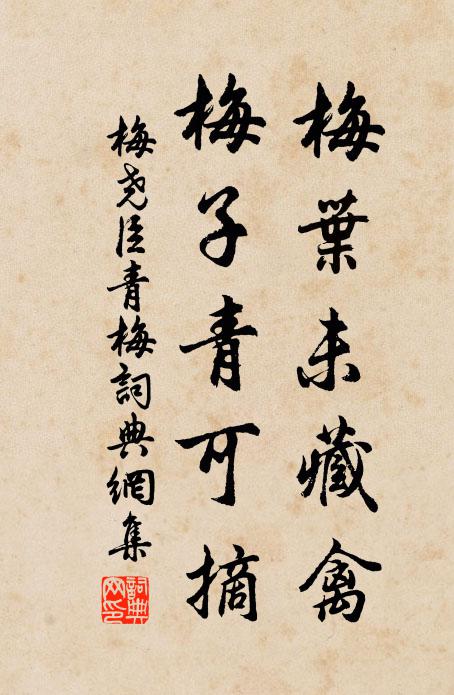 梅葉未藏禽
梅子青可摘
梅尧臣青梅詞典網集
詞典